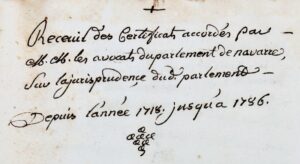 Receuil des Certificats accordés par
M.M. les avocats du parlement de navarre,
Sur la jurisprudence du d. parlement
Depuis l'année 1718. jusqu'à 1786.